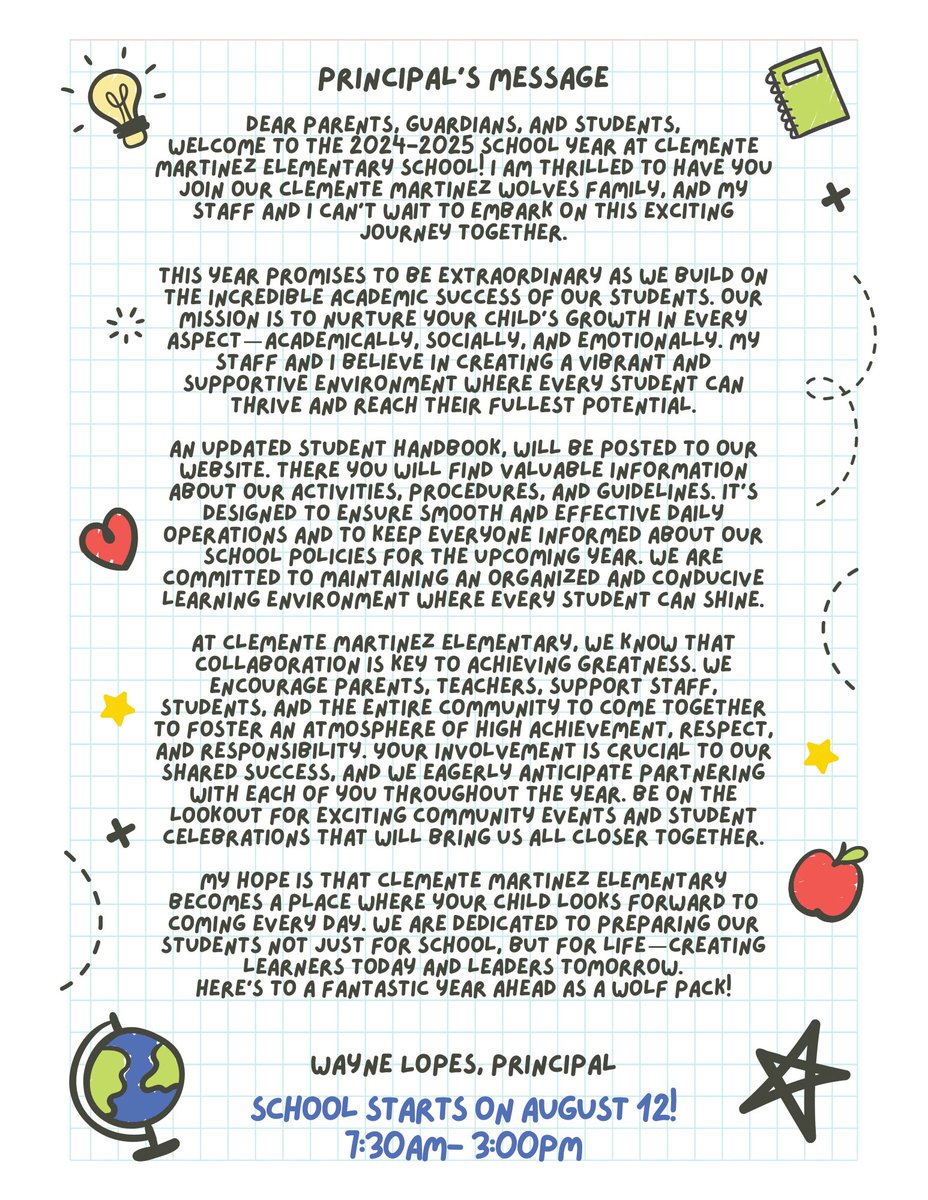 PRINCIPAL'S MESSAGE
DEAR PARENTS, GUARDIANS, AND STUDENTS,
WELCOME TO THE 2024-2025 SCHOOL YEAR AT CLEMENTE
MARTINEZ ELEMENTARY SCHOOL! I AM THRILLED TO HAVE YOU
JOIN OUR CLEMENTE MARTINEZ WOLVES FAMILY, AND MY
STAFF AND I CAN'T WAIT TO EMBARK ON THIS EXCITING
JOURNEY TOGETHER.
THIS YEAR PROMISES TO BE EXTRAORDINARY AS WE BUILD ON
THE INCREDIBLE ACADEMIC SUCCESS OF OUR STUDENTS. OUR
MISSION IS TO NURTURE YOUR CHILD'S GROWTH IN EVERY
ASPECT—ACADEMICALLY, SOCIALLY, AND EMOTIONALLY. MY
STAFF AND I BELIEVE IN CREATING A VIBRANT AND
SUPPORTIVE ENVIRONMENT WHERE EVERY STUDENT CAN
THRIVE AND REACH THEIR FULLEST POTENTIAL.
AN UPDATED STUDENT HANDBOOK, WILL BE POSTED TO OUR
WEBSITE. THERE YOU WILL FIND VALUABLE INFORMATION
ABOUT OUR ACTIVITIES, PROCEDURES, AND GUIDELINES. IT'S
DESIGNED TO ENSURE SMOOTH AND EFFECTIVE DAILY
OPERATIONS AND TO KEEP EVERYONE INFORMED ABOUT OUR
SCHOOL POLICIES FOR THE UPCOMING YEAR. WE ARE
COMMITTED TO MAINTAINING AN ORGANIZED AND CONDUCIVE
LEARNING ENVIRONMENT WHERE EVERY STUDENT CAN SHINE.
AT CLEMENTE MARTINEZ ELEMENTARY, WE KNOW THAT
COLLABORATION IS KEY TO ACHIEVING GREATNESS. WE
ENCOURAGE PARENTS, TEACHERS, SUPPORT STAFF,
STUDENTS, AND THE ENTIRE COMMUNITY TO COME TOGETHER
TO FOSTER AN ATMOSPHERE OF HIGH ACHIEVEMENT, RESPECT,
AND RESPONSIBILITY. YOUR INVOLVEMENT IS CRUCIAL TO OUR
SHARED SUCCESS, AND WE EAGERLY ANTICIPATE PARTNERING
WITH EACH OF YOU THROUGHOUT THE YEAR. BE ON THE
LOOKOUT FOR EXCITING COMMUNITY EVENTS AND STUDENT
CELEBRATIONS THAT WILL BRING US ALL CLOSER TOGETHER.
MY HOPE IS THAT CLEMENTE MARTINEZ ELEMENTARY
BECOMES A PLACE WHERE YOUR CHILD LOOKS FORWARD TO
COMING EVERY DAY. WE ARE DEDICATED TO PREPARING OUR
STUDENTS NOT JUST FOR SCHOOL, BUT FOR LIFE—CREATING
LEARNERS TODAY AND LEADERS TOMORROW.
HERE'S TO A FANTASTIC YEAR AHEAD AS A WOLF PACK!
WAYNE LOPES, PRINCIPAL
SCHOOL STARTS ON AUGUST 12!
7:30AM- 3:00PM